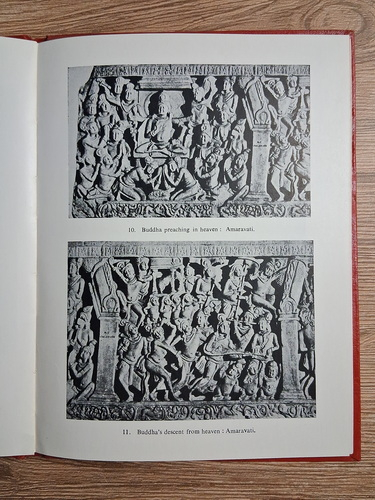 10. Buddha preaching in heaven : Amaravati.
11. Buddha's descent from heaven : Amaravati.